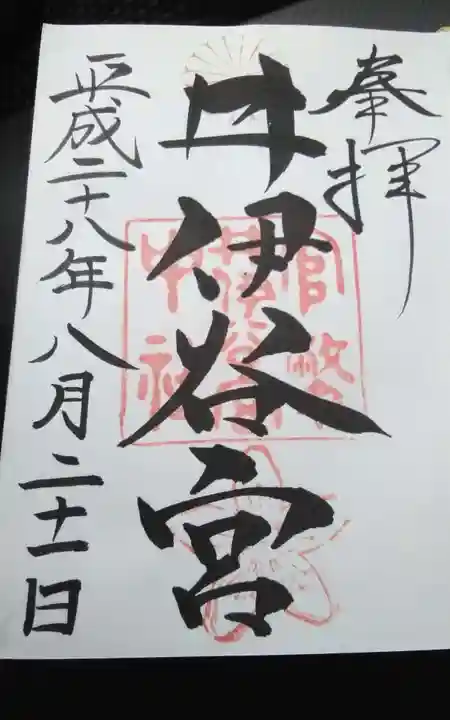 奉拝
井伊谷宮
平成二十八年八月二十一日
官幣
井伊谷宮
中社